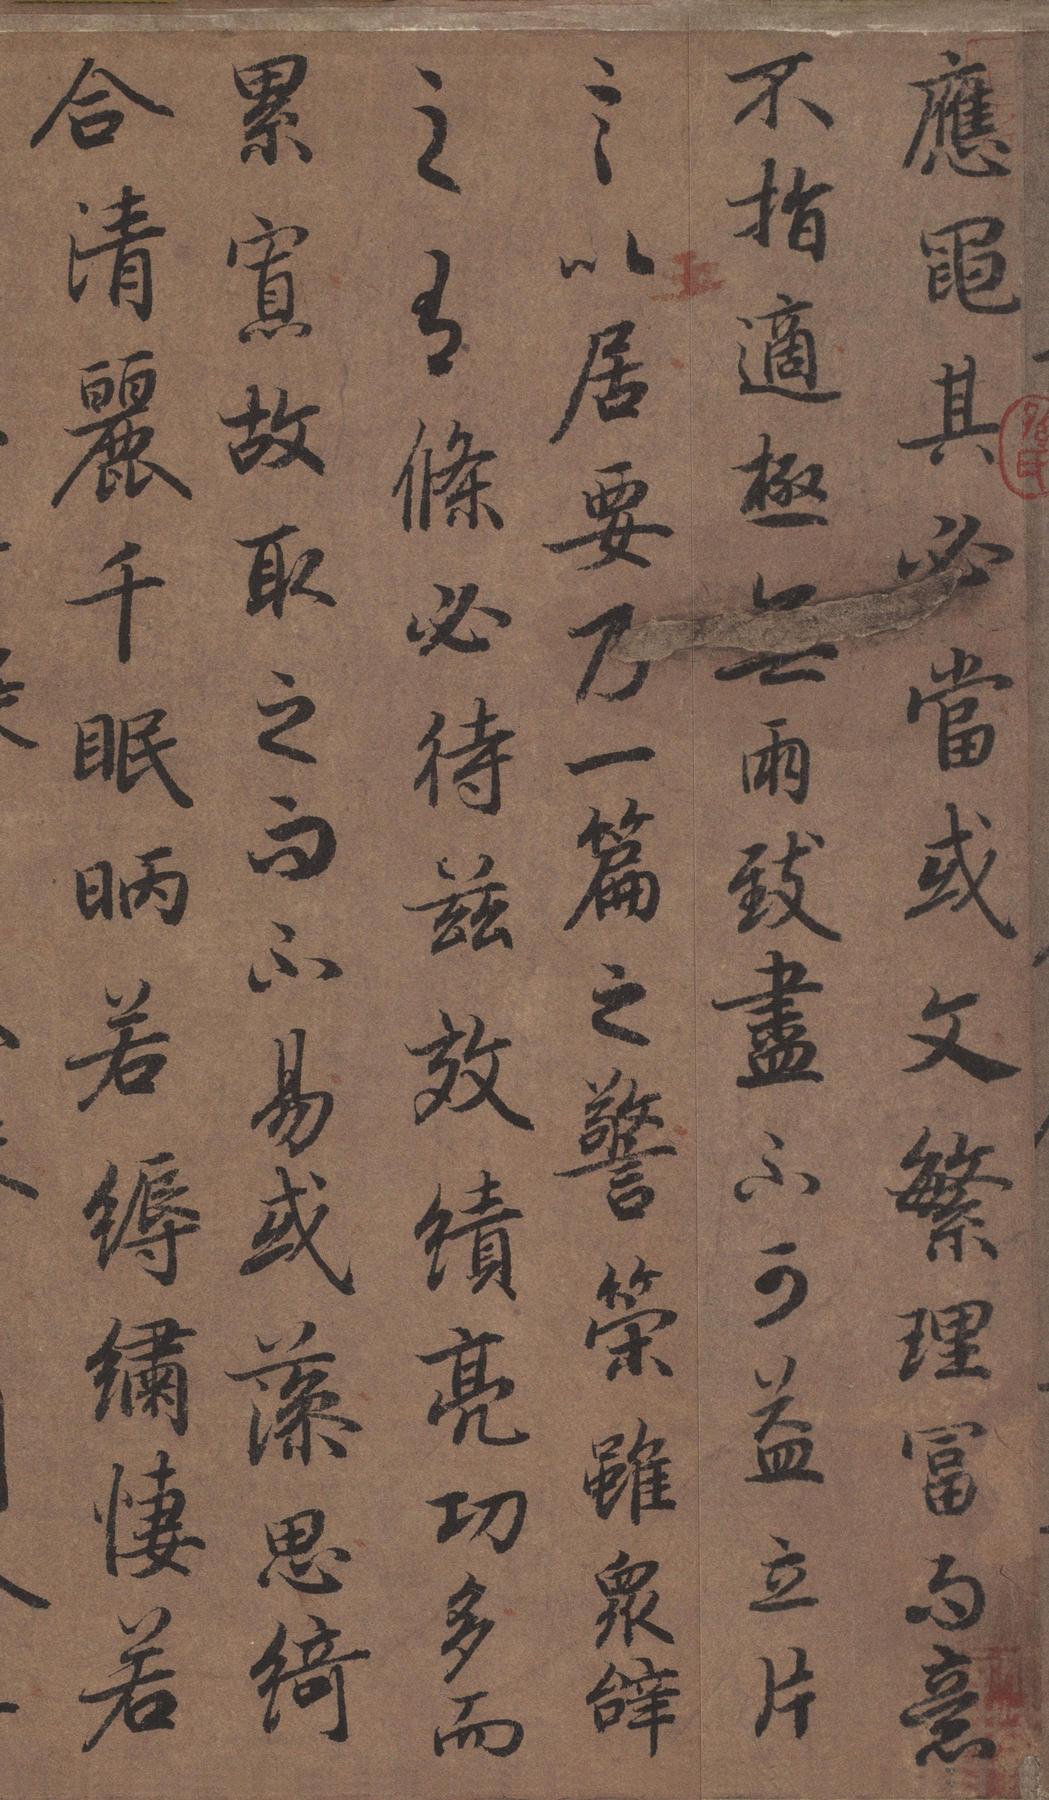 應黽其必當或文繁理富而意
不指適極無兩致盡不可益立片
言以居要乃一篇之警策雖衆辝
之有條必待茲效績亮功多而
累寡故取之而不易或藻思綺
合清麗千眠昞若縟繡悽若